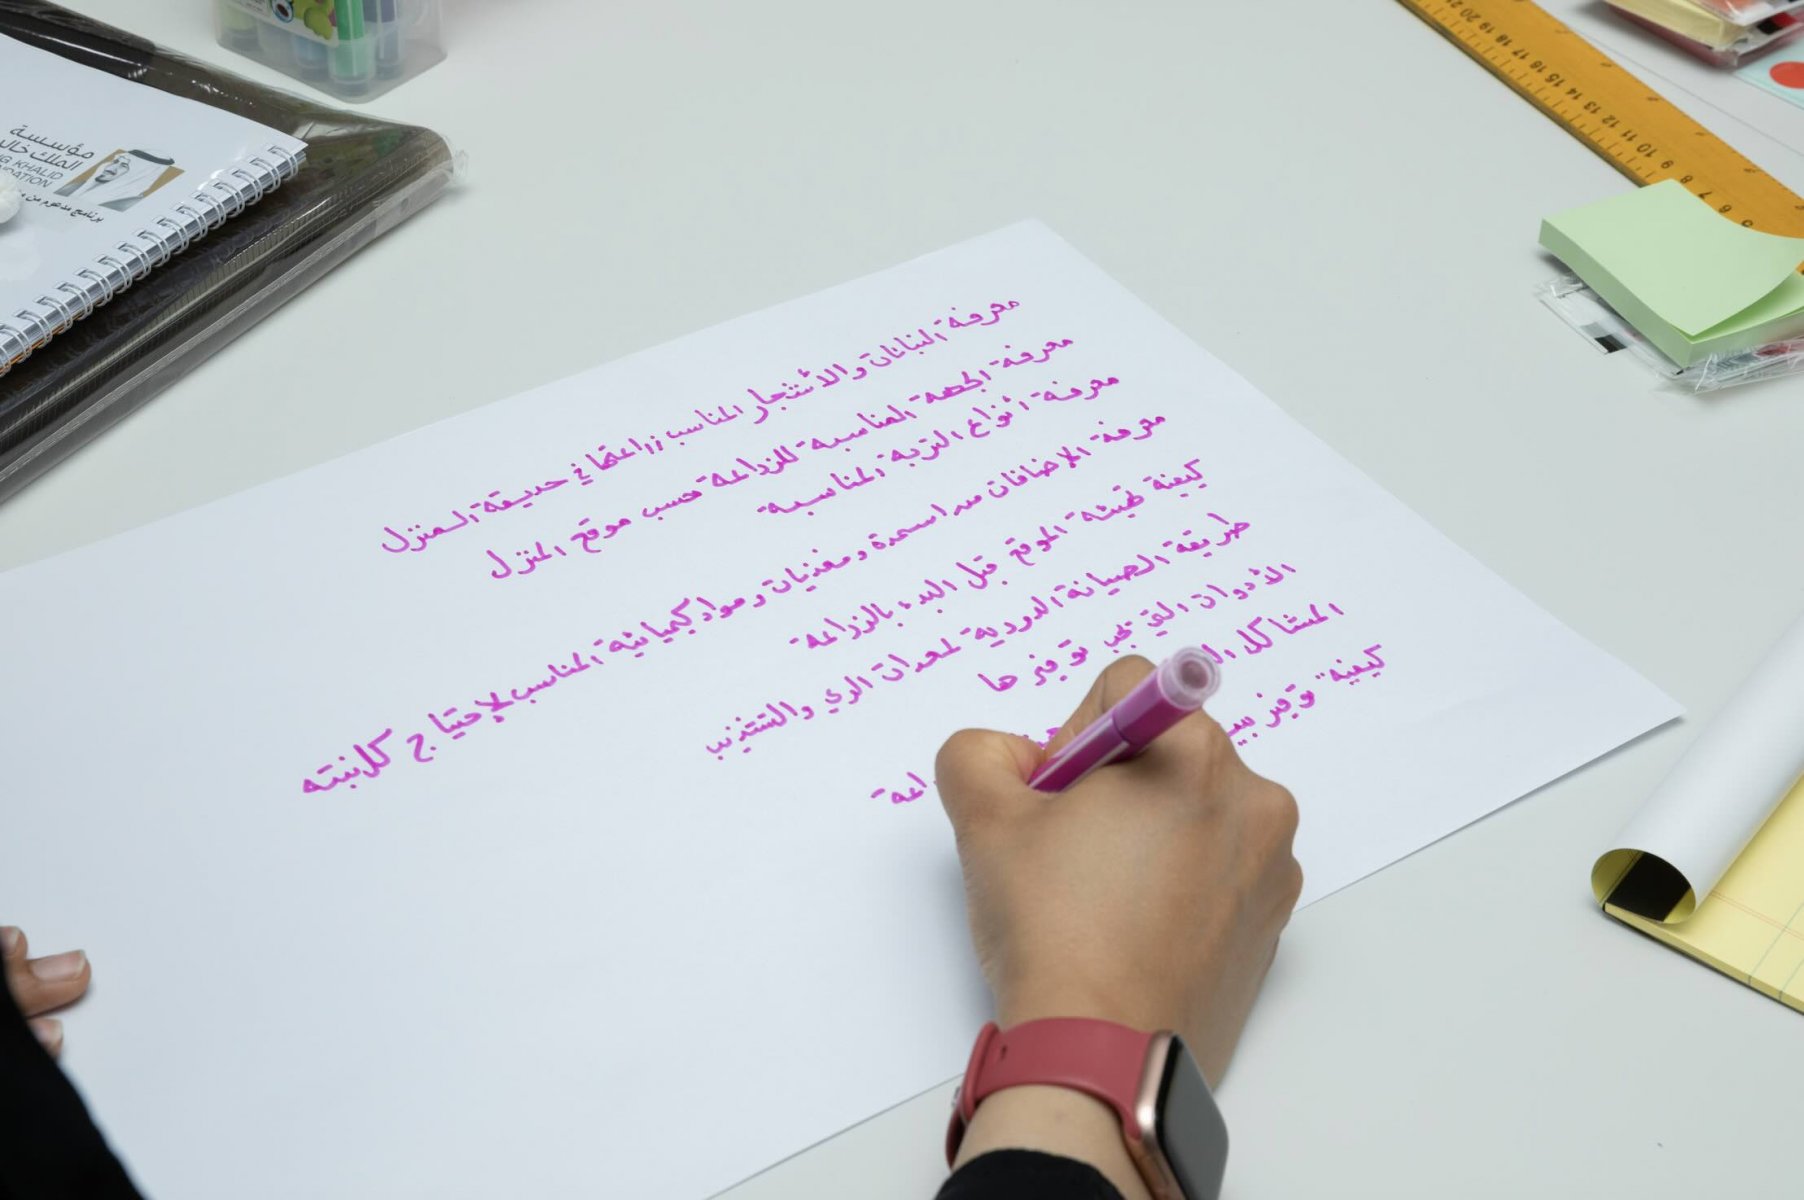 مؤسسة
الملك خالد
KHALID
DATION
برنامج مدعوم من
معرفة النباتات والأشجار المناسب زراعتها في حديقة المنزل
معرفة الجهة المناسبة للزراعة حسب موقع المنزل
معرفة أنواع التربة المناسبة
معرفة الإضافات من اسمدة ومغذيات ومواد كيميائية المناسب لإحتياج كل نبته
كيفية تهيئة الموقع قبل البدء بالزراعة
طريقة الصيانة الدورية لمعدات الري والتشذيب
الأدوات التي يجب توفيرها
المشاكل
كيفية توفير
20 19 18 17 16 15 14 13 12 11 10 9 8 7 6 5